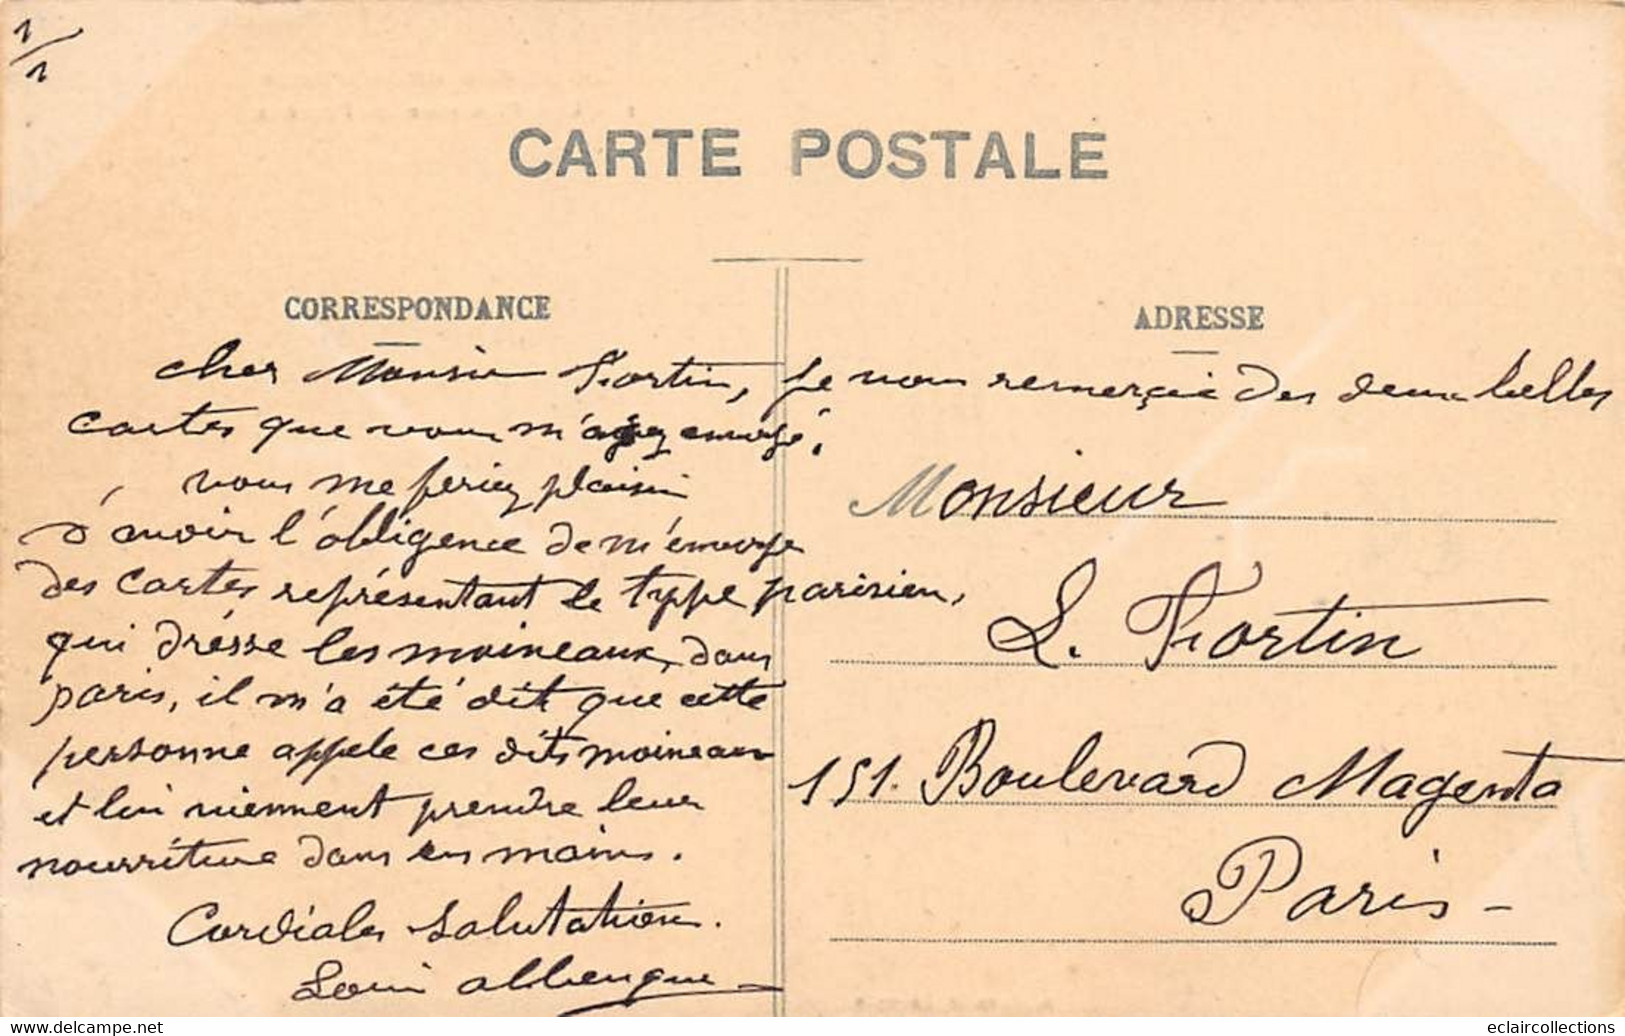 1/1
CARTE POSTALE
CORRESPONDANCE
ADRESSE
cher Monsieur Fortin, je vous remerçie des deux belles
cartes que vous m'avez envoyé,
vous me feriez plaisir
d'avoir l'obligence de m'envoyé
des cartes représentant le type parisien,
qui drésse les moineaux, dans
paris, il m'a été dit que cette
personne appele ces dits moineaux
et lui viennent prendre leur
nourriture dans ses mains.
Cordiales Salutations.
Louis
Monsieur
L. Fortin
151. Boulevard Magenta
Paris -
eclaircollections